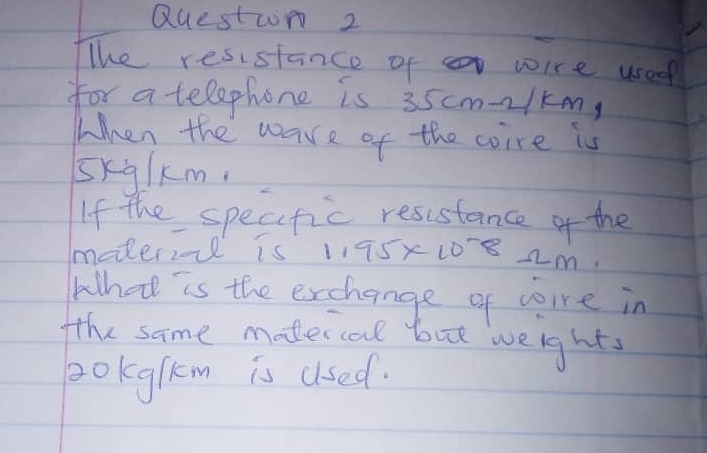 Question 2
The resistance of wire used
for a telephone is 35cm Ω/km,
When the wave of the wire is
5kg/km.
If the specific resistance of the
material is 1.95x10-8 Ωm.
What is the exchange of wire in
the same material but weights
20kg/km is used.